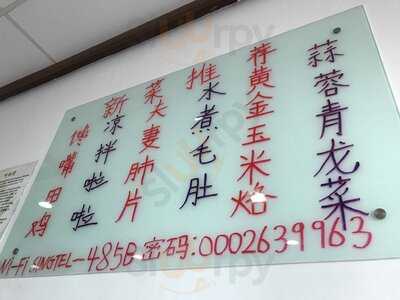 新菜推荐
馋嘴田鸡
凉拌啦啦
夫妻肺片
水煮毛肚
黄金玉米烙
蒜蓉青龙菜
Wi-Fi SINGTEL-485B 密码:0002639963
sluurpy